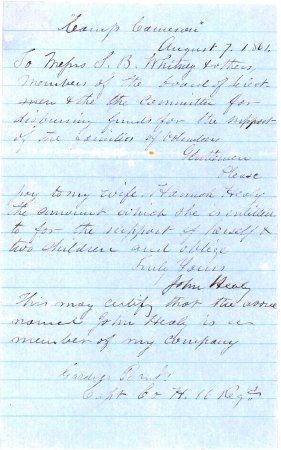 "Camp Cameron"
August 7. 1861.
To Messrs S. B. Whitney & others
members of the board of select
men & the the Committee for
dispursing funds for the support
of the families of Volunteers
Gentlemen
Please
pay to my wife, Hannah Healy
the amount which she is intitled
to for the support of herself &
two children and oblige
Truly Yours
John Healy
This may certify that the above
named John Healy is a
member of my Company
Capt Co H. 16 Regt